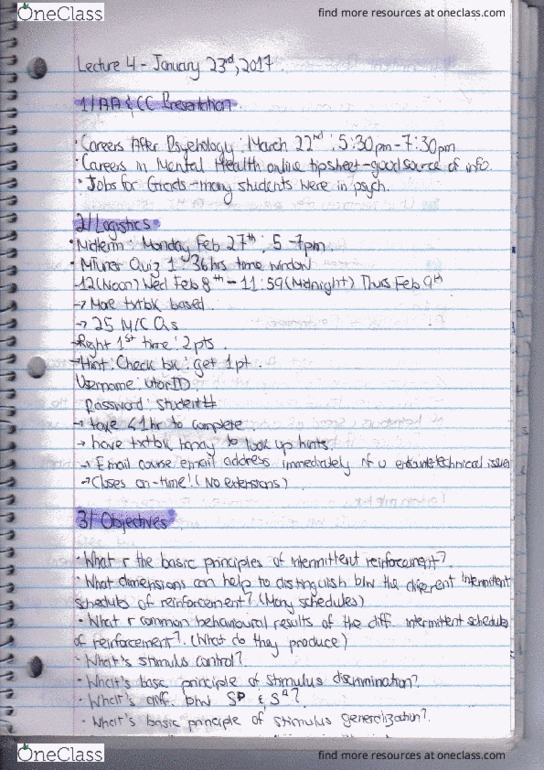 OneClass
find more resources at oneclass.com
Lecture 4 - January 23rd, 2017.
1/ AA & CC Presentation
· Careers After Psychology : March 22nd : 5:30pm-7:30pm
· Careers in Mental Health online tipsheet - good source of info.
· Jobs for Grads - many students were in psych.
2/ Logistics
· Midterm: Monday Feb 27th : 5-7pm
· Quiz 1 : 36hrs time window
-12(Noon) Wed Feb 8th - 11:59(Midnight) Thurs Feb 9th
→ More txtbk based.
→ 25 M/C Qs
→Right 1st time : 2pts.
→Hint: Check bk : get 1pt.
Username: UtorID
Password: Student#
→ take <1hr to complete.
→ have txtbk handy to look up hints.
→ Email course email address immediately if u encounter technical issues
→ Closes on-time! (No extensions)
3/ Objectives
· What r the basic principles of intermittent reinforcement?
· What dimensions can help to distinguish b/w the different intermittent
schedules of reinforcement? (Many schedules)
· What r common behavioural results of the diff. intermittent schedules
of reinforcement? (What do they produce)
· What's stimulus control?
· What's basic principle of stimulus discrimination?
· What's diff. b/w SD & SΔ?
· What's basic principle of stimulus generalization?
OneClass
find more resources at oneclass.com